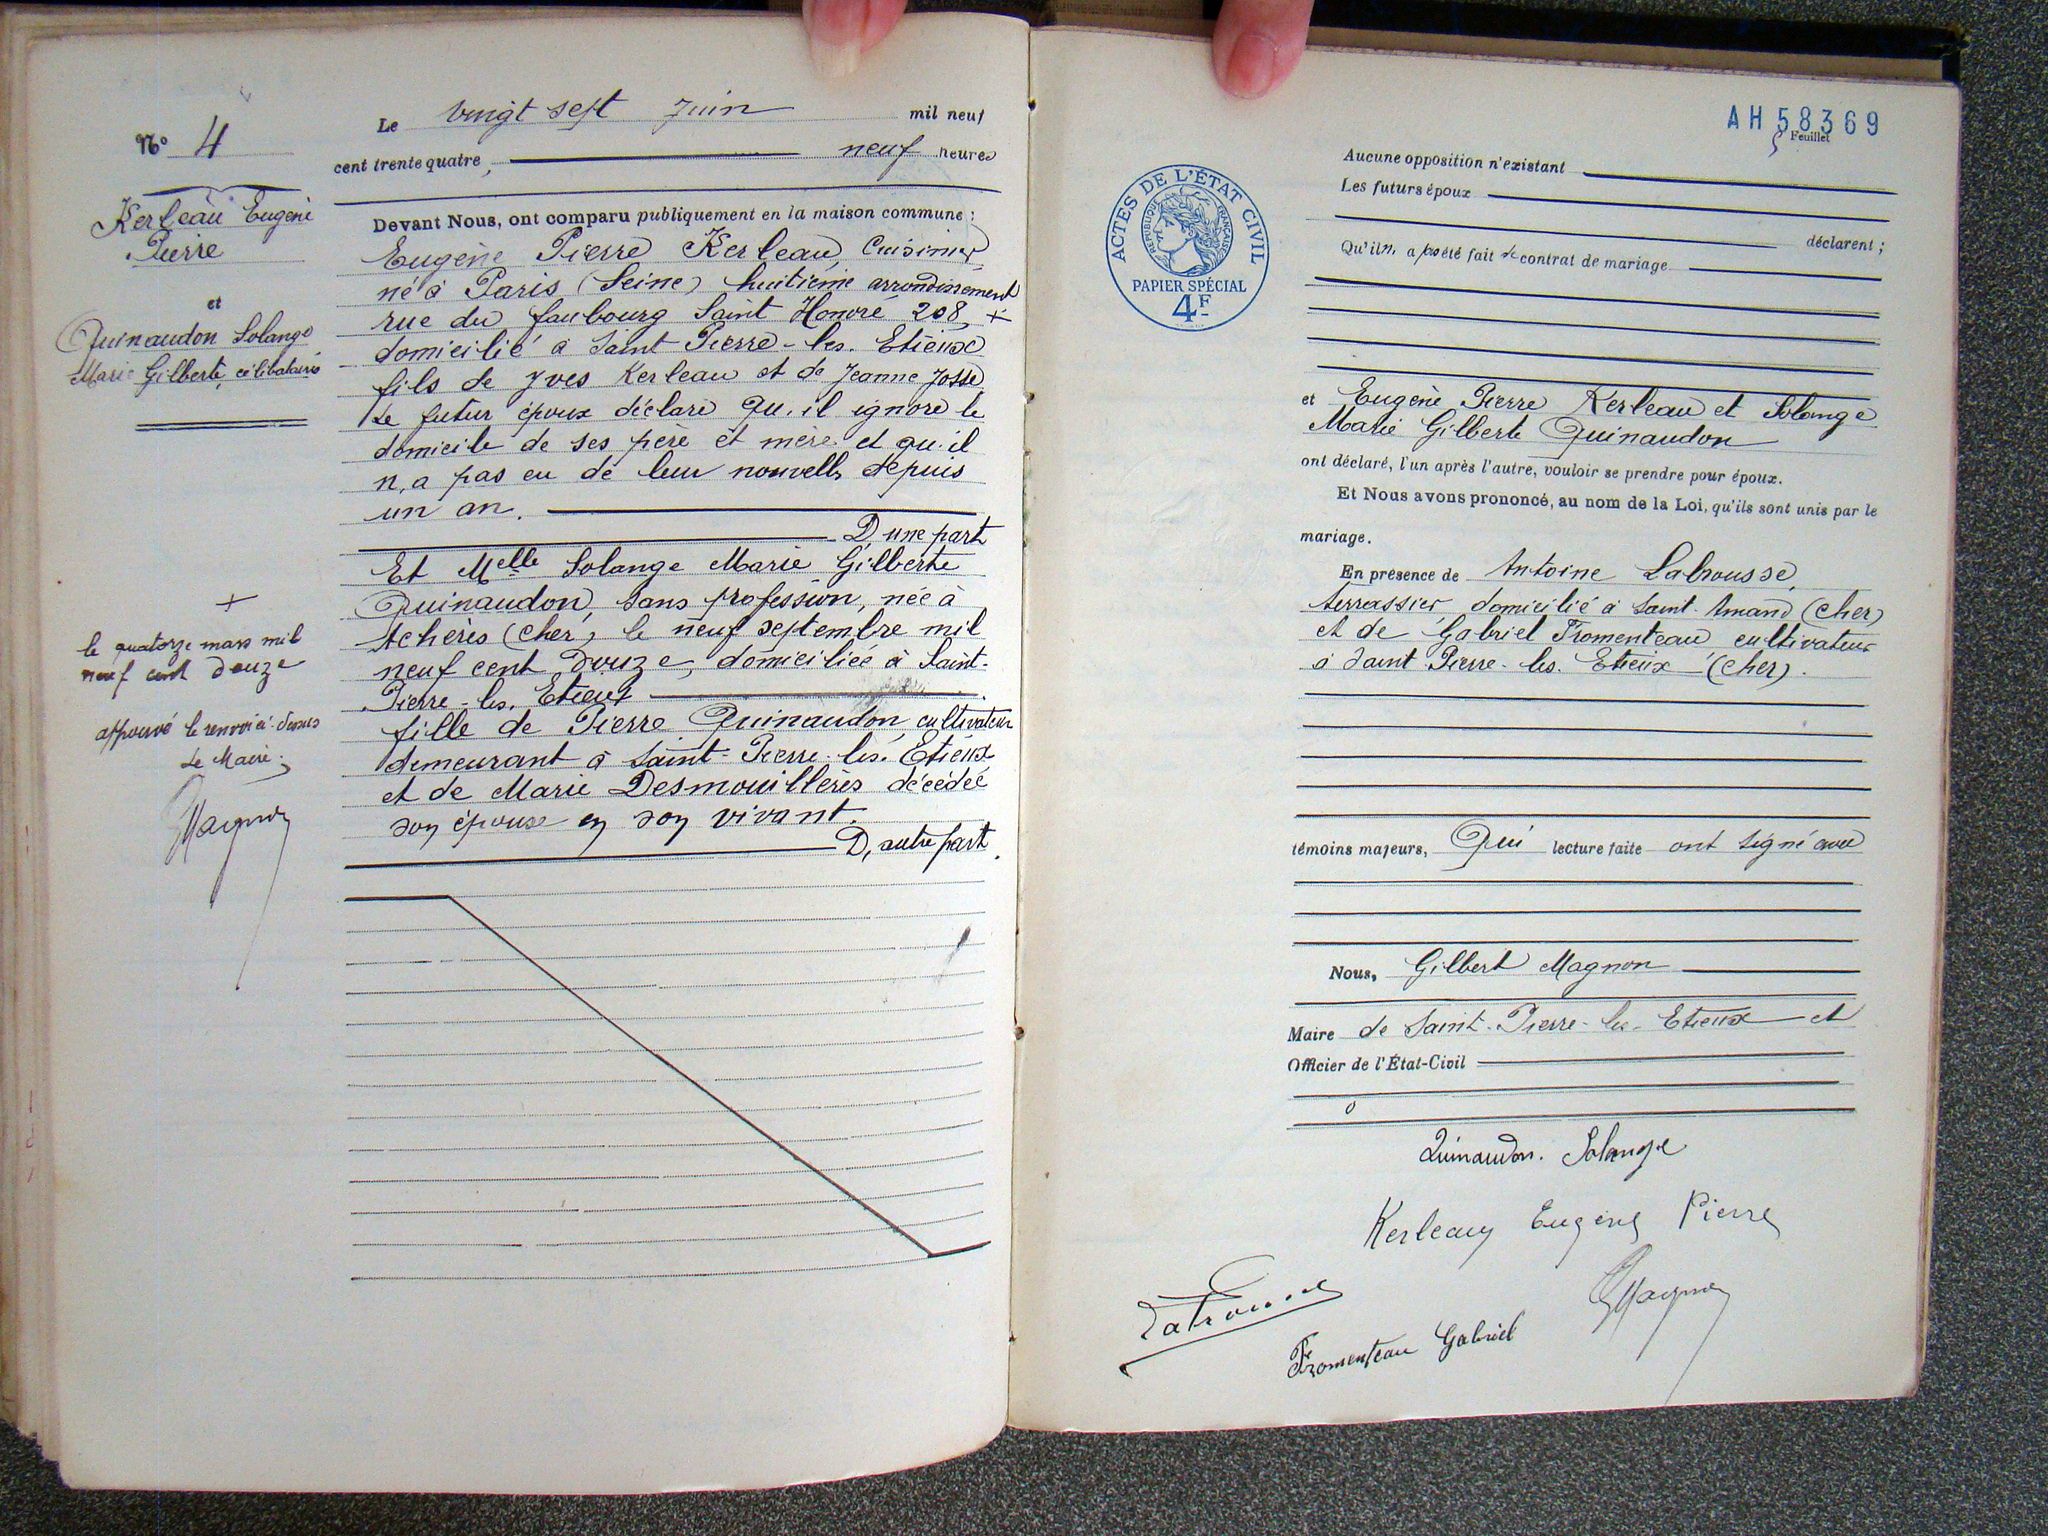 N° 4
Kerleau Eugène
Pierre
et
Quinaudon Solange
Marie Gilberte, célibataires
+
le quatorze mars mil
neuf cent douze
approuvé le renvoi ci-dessus
Le Maire.
GMagnon
Le vingt sept Juin mil neuf
cent trente quatre, neuf heures
Devant Nous, ont comparu publiquement en la maison commune :
Eugène Pierre Kerleau, Cuisinier,
né à Paris (Seine) huitième arrondissement
rue du faubourg Saint Honoré 208, +
domicilié à Saint-Pierre-les-Etieux
fils de Yves Kerleau et de Jeanne Josse
Le futur époux déclare qu'il ignore le
domicile de ses père et mère et qu'il
n'a pas eu de leur nouvelle depuis
un an.
D'une part
Et Melle Solange Marie Gilberte
Quinaudon, sans profession, née à
Achères (Cher), le neuf septembre mil
neuf cent douze, domiciliée à Saint-
Pierre-les-Etieux
fille de Pierre Quinaudon, cultivateur
demeurant à Saint-Pierre-les-Etieux
et de Marie Desmouillères décédée
son épouse en son vivant.
D'autre part.
AH 58369
5 Feuillet
ACTES DE L'ÉTAT CIVIL
RÉPUBLIQUE FRANÇAISE
PAPIER SPÉCIAL
4F
Aucune opposition n'existant
Les futurs époux
déclarent ;
Qu'il n'a pas été fait de contrat de mariage
et Eugène Pierre Kerleau et Solange
Marie Gilberte Quinaudon
ont déclaré, l'un après l'autre, vouloir se prendre pour époux.
Et Nous avons prononcé, au nom de la Loi, qu'ils sont unis par le
mariage.
En présence de Antoine Labrousse,
terrassier domicilié à Saint-Amand (Cher)
et de Gabriel Fromenteau cultivateur
à Saint-Pierre-les-Etieux (Cher).
témoins majeurs, Qui lecture faite ont signé avec
Nous, Gilbert Magnon
Maire de Saint-Pierre-les-Etieux et
Officier de l'État-Civil
Quinaudon. Solange
Kerleau Eugène Pierre
Labrousse
GMagnon
Fromenteau Gabriel